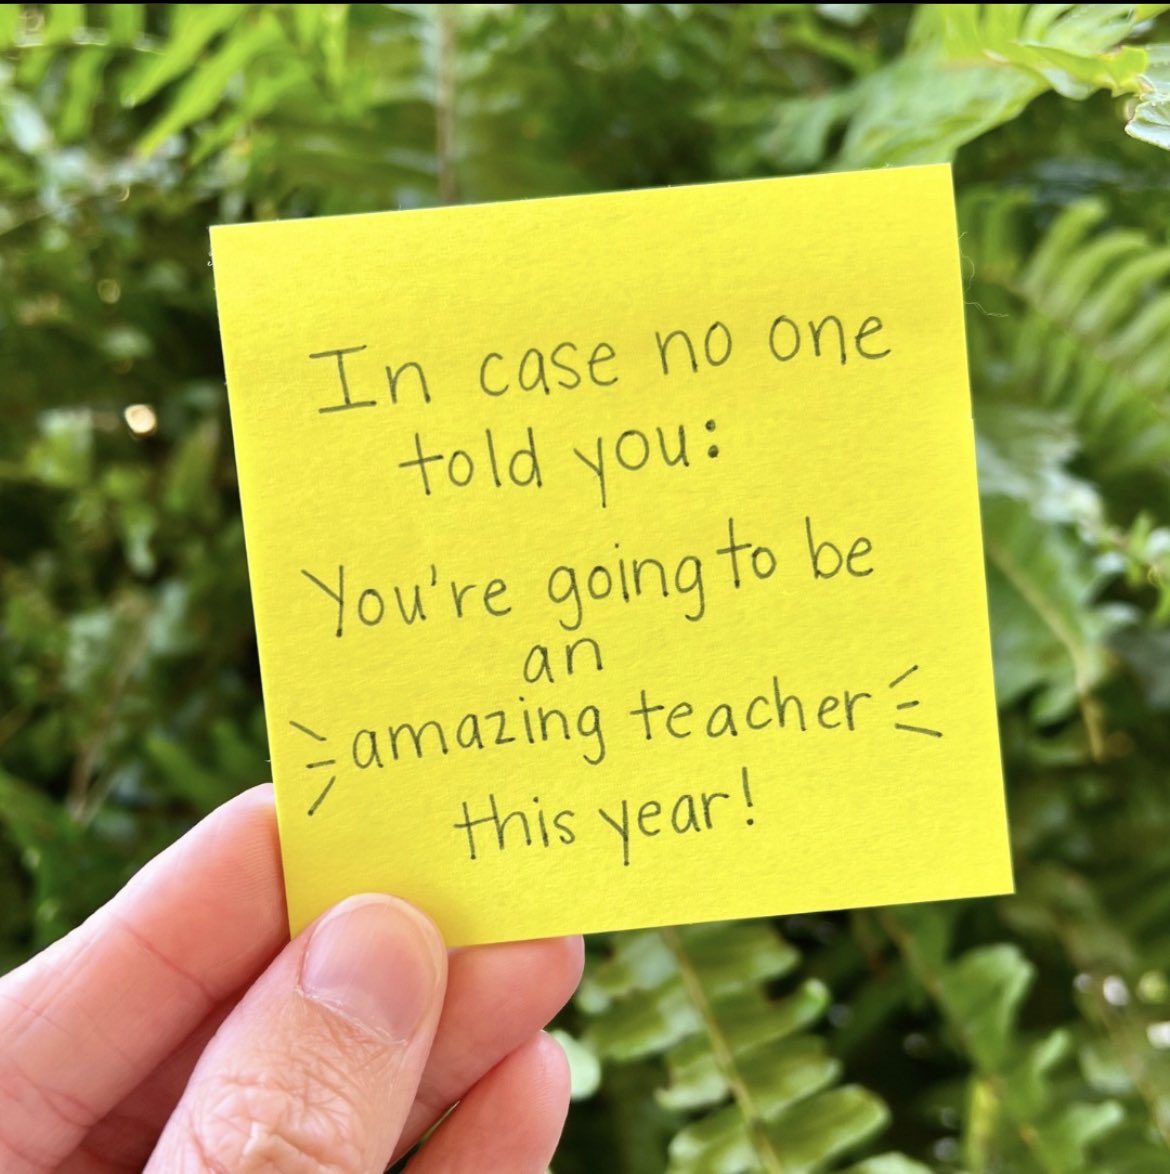 In case no one
told you:
You're going to be
an
amazing teacher
this year!